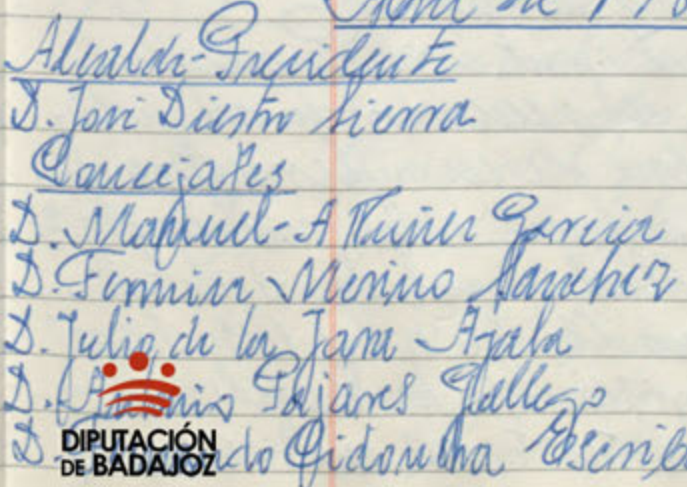 de 19
Alcalde-Presidente
D. José Diestro Sierra
Concejales
D. Manuel-A Núñez García
D. Fermin Merino Sanchez
D. Julio de la Jara Ayala
D. Antonio Pajares Gallego
D. Cidoncha Escrib
DIPUTACIÓN
DE BADAJOZ